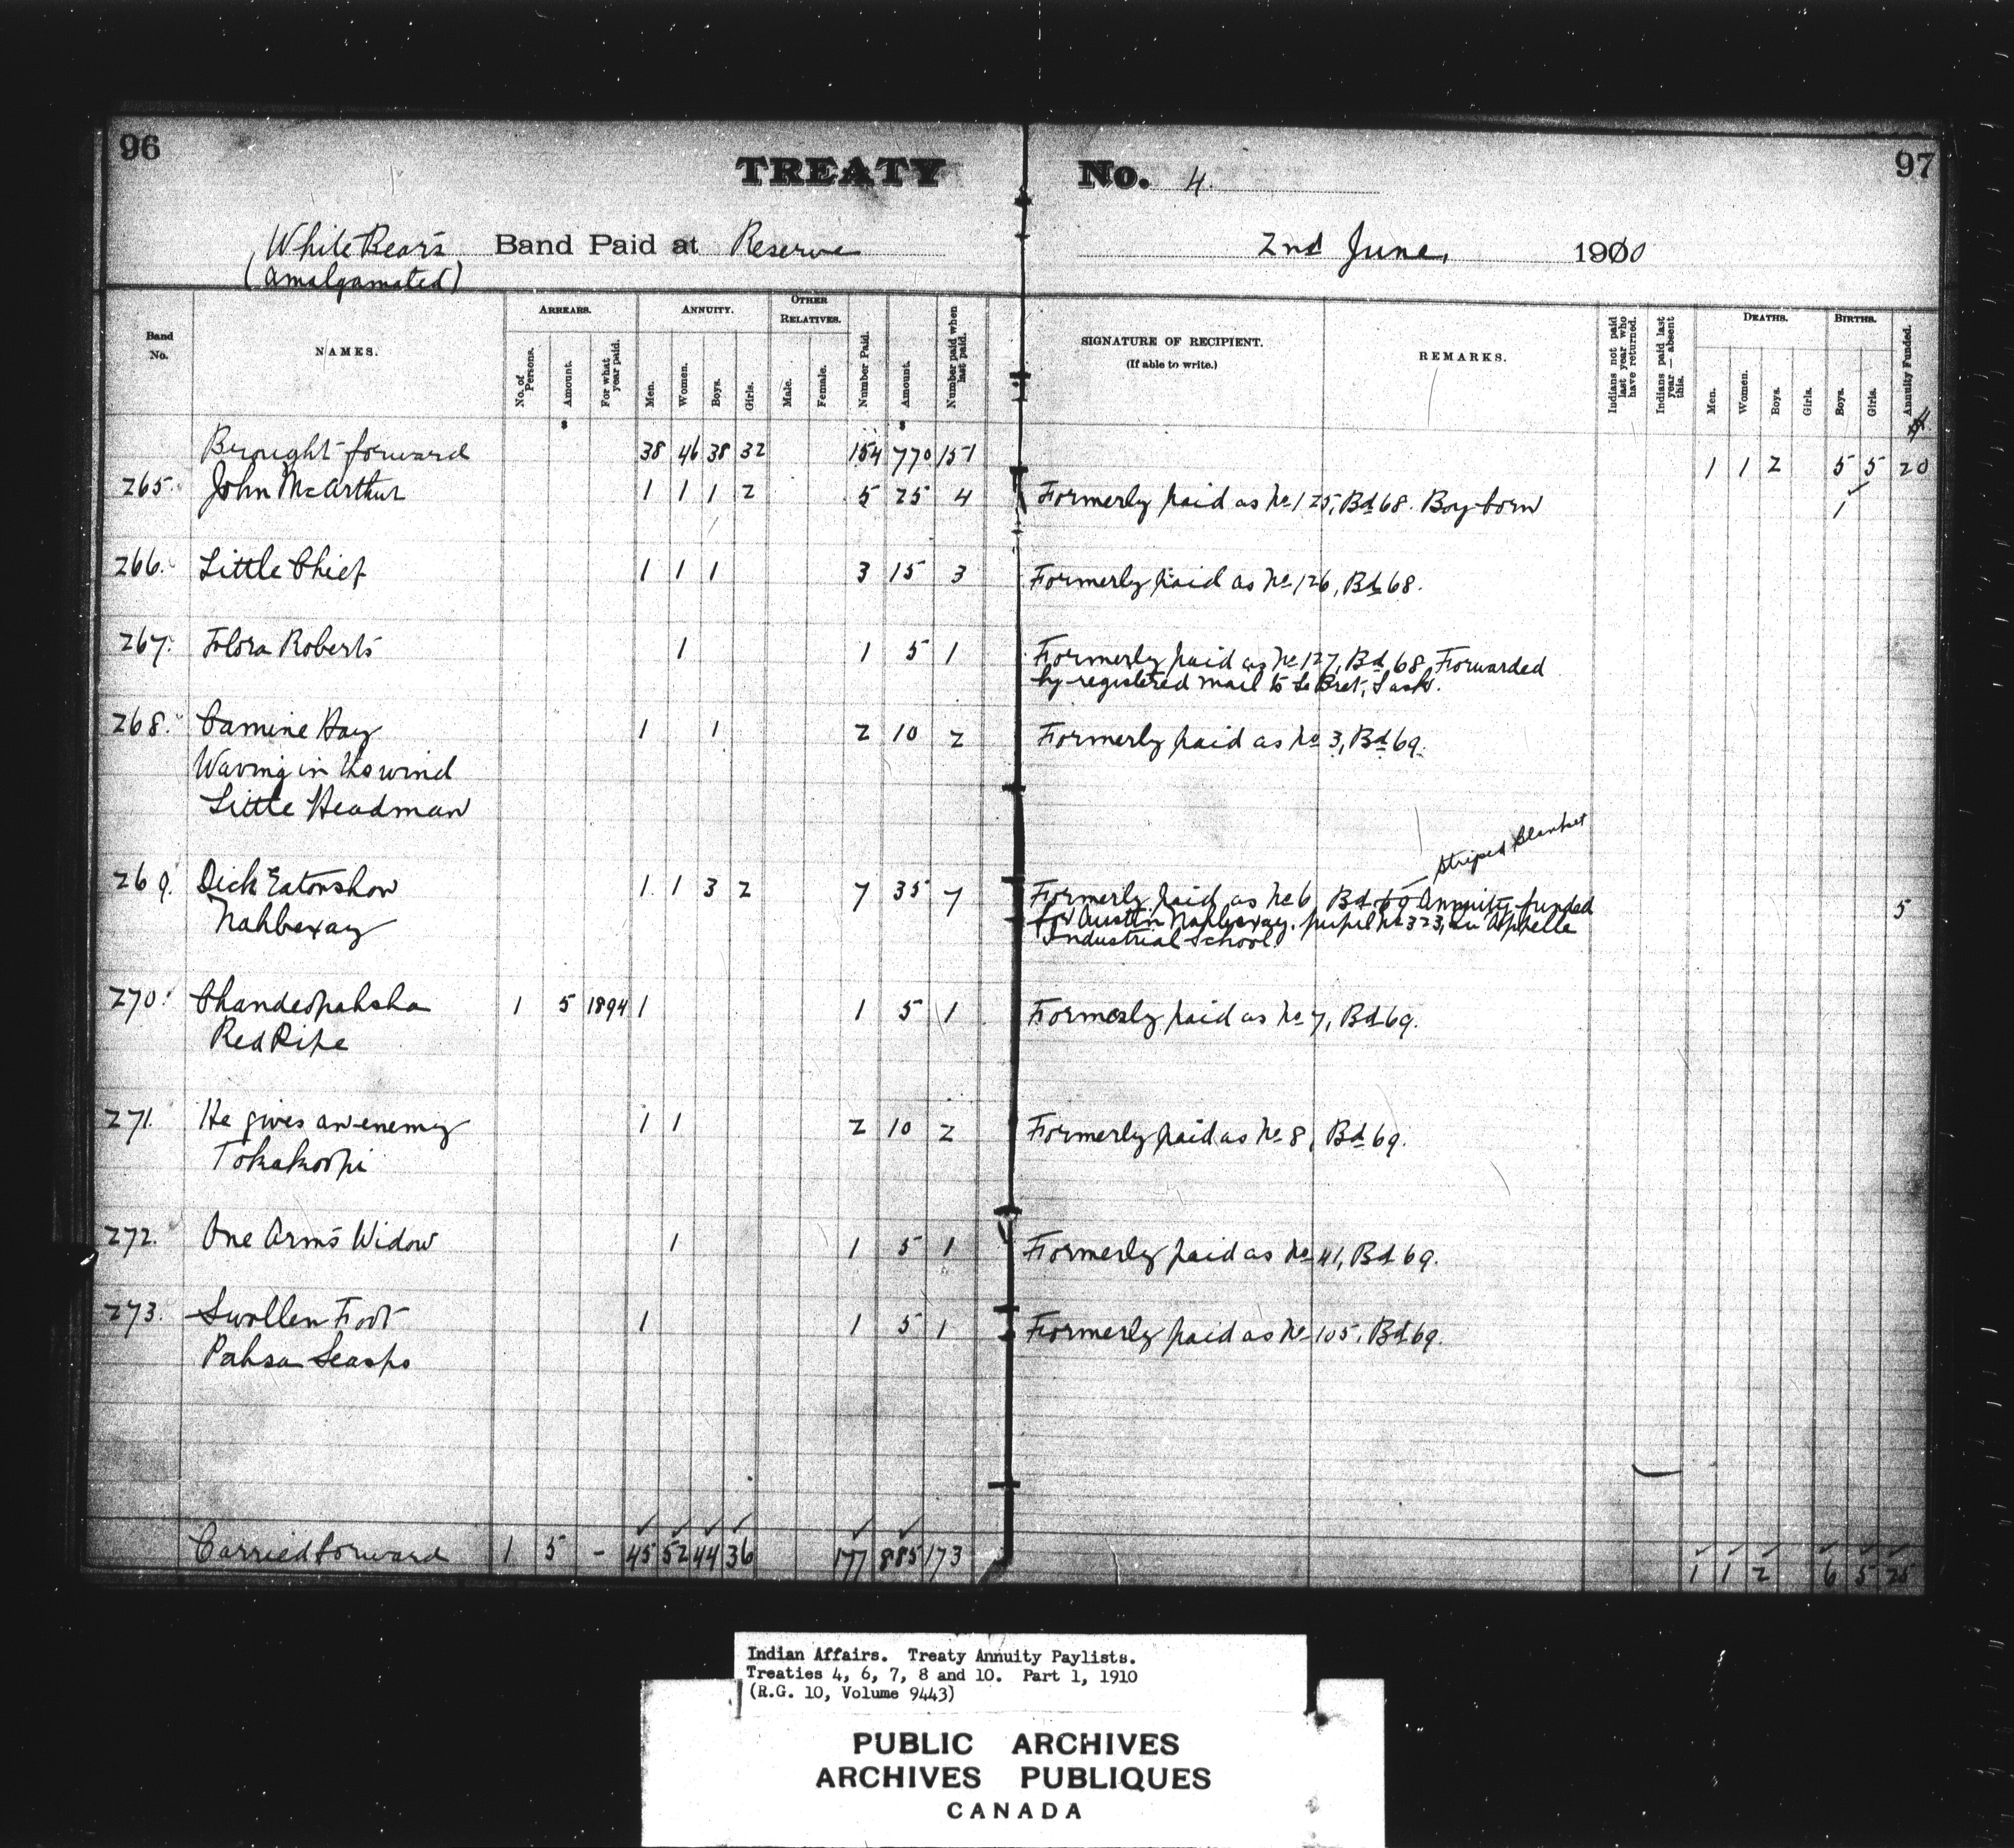 96
97
TREATY No. 4.
White Bear's Band Paid at Reserve 2nd June, 1910
(amalgamated)
Band No. NAMES. ARREARS. No. of Persons. Amount. For what year paid. ANNUITY. Men. Women. Boys. Girls. OTHER RELATIVES. Male. Female. Number Paid. Amount. Number paid when last paid. SIGNATURE OF RECIPIENT. (If able to write.) REMARKS. Indians not paid last year who have returned. Indians paid last year — absent this. DEATHS. Men. Women. Boys. Girls. BIRTHS. Boys. Girls. Annuity Funded.
$ $ $
Brought forward 38 46 38 32 154 770 151 1 1 2 5 5 20
265. John McArthur 1 1 1 2 5 25 4 Formerly paid as No 125, Bd 68. Boy born 1
266. Little Chief 1 1 1 3 15 3 Formerly paid as No 126, Bd 68.
267. Flora Roberts 1 1 5 1 Formerly paid as No 127, Bd 68, Forwarded
by registered mail to Le Bret, Sask.
268. Camine Hay 1 1 2 10 2 Formerly paid as No 3, Bd 69.
Waving in the wind
Little Headman
Striped Blanket
269. Dick Eatonshow 1 1 3 2 7 35 7 Formerly paid as No 6, Bd 69 Annuity funded 5
Nahbexay for Austin Nahbexay, pupil No 323, Qu'Appelle
Industrial School.
270. Chandeopahsha 1 5 1894 1 1 5 1 Formerly paid as No 7, Bd 69.
Red Pipe
271. He gives an enemy 1 1 2 10 2 Formerly paid as No 8, Bd 69.
Tokakoopi
272. One Arm's Widow 1 1 5 1 Formerly paid as No 41, Bd 69.
273. Swollen Foot 1 1 5 1 Formerly paid as No 105, Bd 69.
Pahsa Seaspo
Carried forward 1 5 - 45 52 44 36 177 885 173 1 1 2 6 5 25
Indian Affairs. Treaty Annuity Paylists.
Treaties 4, 6, 7, 8 and 10. Part 1, 1910
(R.G. 10, Volume 9443)
PUBLIC ARCHIVES
ARCHIVES PUBLIQUES
CANADA